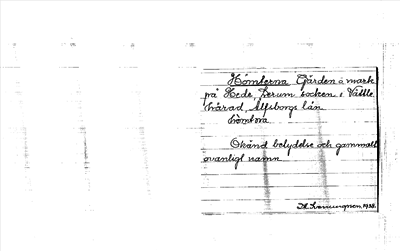 Hömterna Gården å mark
på Hede, Lerum socken, Vättle
härad, Älfsborgs län
hömtəna
Okänd betydelse och gammalt
ovanligt namn
1938.